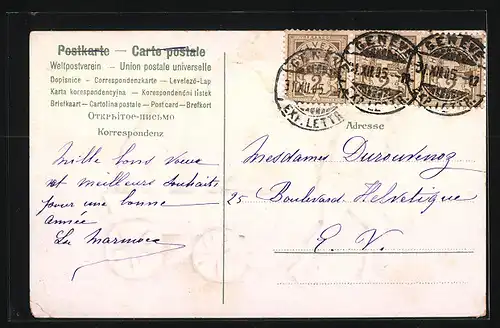 Postkarte — Carte postale
Weltpostverein — Union postale universelle
Dopisnice - Correspondenzkarte - Levelező-Lap
Karta korrespondencyjna - Korespondenční lístek
Briefkaart - Cartolina postale - Postcard - Brefkort
Открытое письмо
Korrespondenz
Adresse
GENÈVE
31.XII.05
EXP. LETTR.
GENÈVE
31.XII.05
EXP. LETTR.
GENÈVE
31.XII.05
EXP. LETTR.
2
Mille bons vœux
et meilleurs souhaits
pour une bonne
année
Mesdames
25 Boulevard Helvetique
E. V.